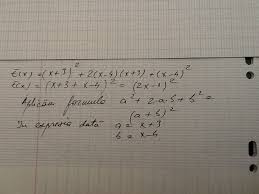 E(x) = (x+3)² + 2(x-4)(x+3) + (x-4)²
E(x) = (x+3 + x-4)² = (2x-1)²
Aplicăm formula a² + 2·a·b + b² =
(a+b)²
În expresia dată a = x+3
b = x-4